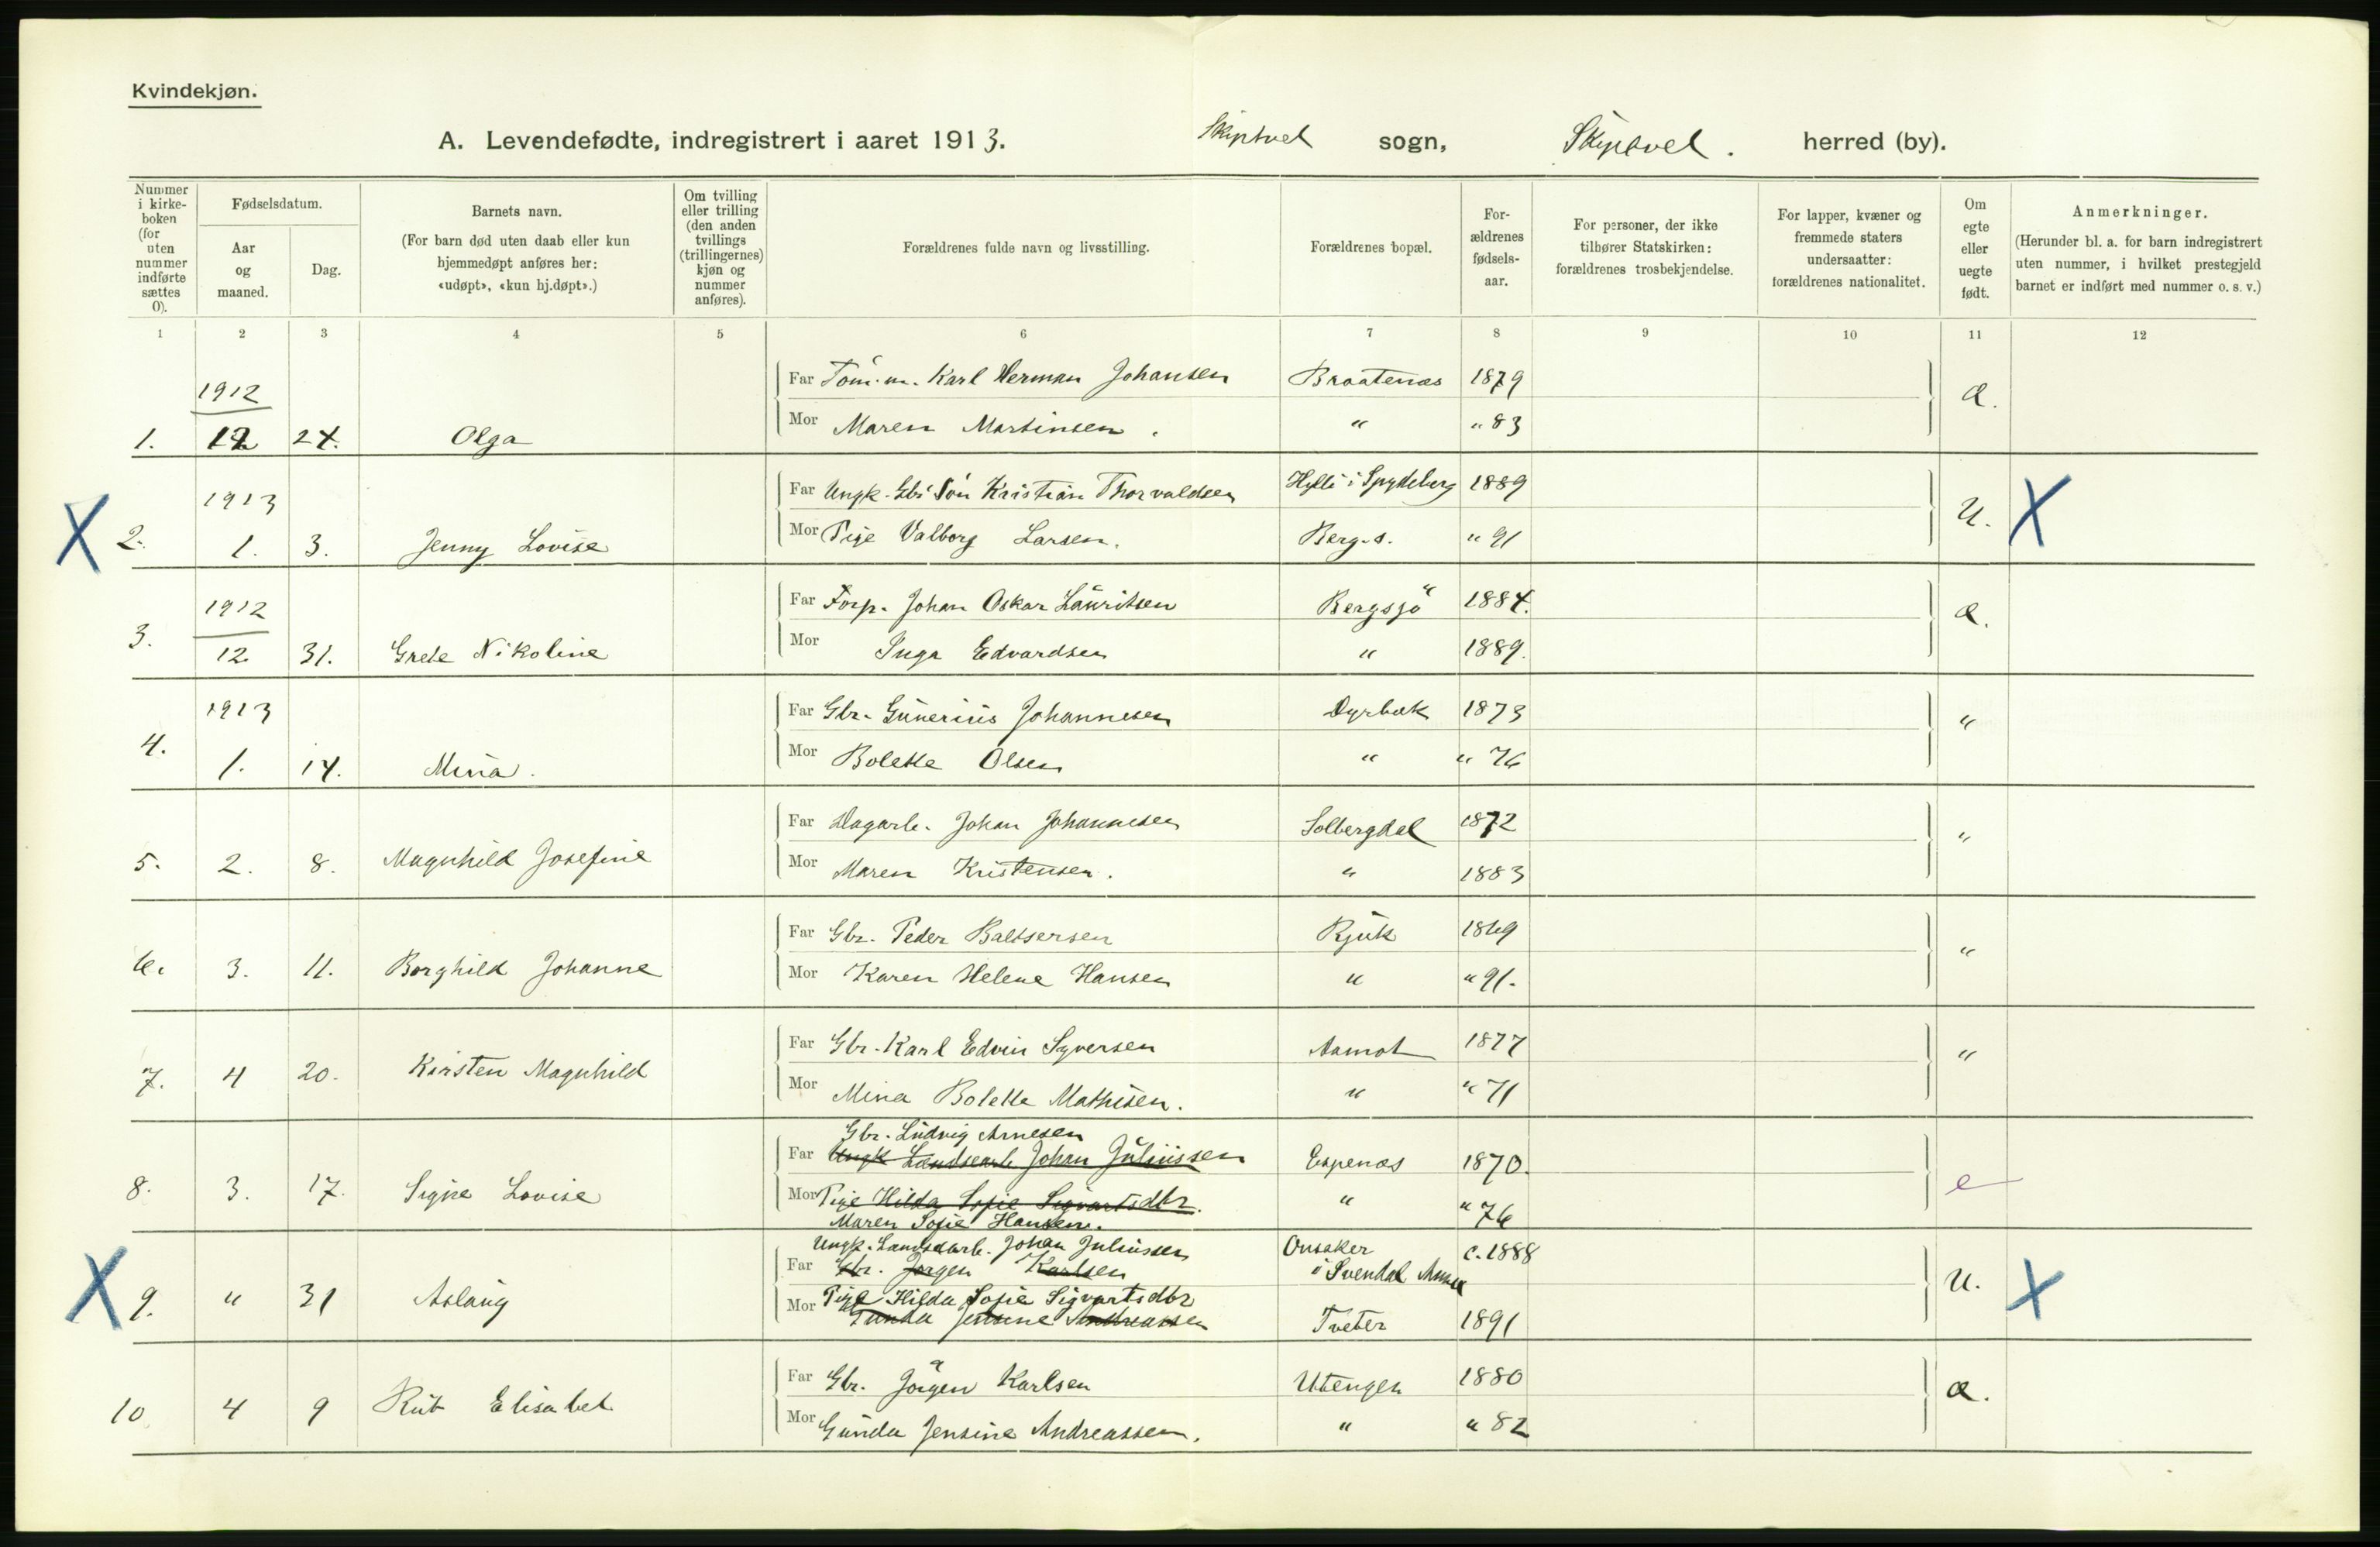 Kvindekjøn.
A. Levendefødte, indregistrert i aaret 1913. Skiptvet sogn, Skiptvet. herred (by).
Nummer i kirke-boken (for uten nummer indførte sættes 0).
Fødselsdatum.
Aar og maaned.
Dag.
Barnets navn.
(For barn død uten daab eller kun hjemmedøpt anføres her: «udøpt», «kun hj.døpt».)
Om tvilling eller trilling (den anden tvillings (trillingernes) kjøn og nummer anføres).
Forældrenes fulde navn og livsstilling.
Forældrenes bopæl.
For-ældrenes fødsels-aar.
For personer, der ikke tilhører Statskirken: forældrenes trosbekjendelse.
For lapper, kvæner og fremmede staters undersaatter: forældrenes nationalitet.
Om egte eller uegte født.
Anmerkninger.
(Herunder bl. a. for barn indregistrert uten nummer, i hvilket prestegjeld barnet er indført med nummer o. s. v.)
1 2 3 4 5 6 7 8 9 10 11 12
1912 Far Tøm.m. Karl Herman Johansen Braatenæs 1879 Æ.
1. 12 24. Olga Mor Maren Martinsen. " " 83
X 1913 Far Ungk. Gbr Søn Kristian Thorvaldsen Hylli i Spydeberg 1889 U. X
2. 1. 3. Jenny Lovise Mor Pige Valborg Larsen. Berg.s. " 91
1912 Far Forp. Johan Oskar Lauritsen Bergsjø 1884. Æ.
3. 12 31. Grete Nikoline Mor Inga Edvardsen " 1889.
1913 Far Gbr. Gunerius Johannesen Dyrbæk 1873 "
4. 1. 14. Mina. Mor Bolette Olsen " " 76
Far Dagarb. Johan Johannesen Solbergdal 1872 "
5. 2. 8. Magnhild Josefine Mor Maren Kristensen. " 1883
Far Gbr. Peder Baltsersen Rjuk 1869 "
6. 3. 11. Borghild Johanne Mor Karen Helene Hansen " " 91.
Far Gbr. Karl Edvin Syversen Aamot 1877 "
7. 4 20. Kirsten Magnhild Mor Mina Bolette Mathisen. " " 71
Gbr. Ludvig Arnesen
Far Ungk Landsearb. Johan Juliussen Espenæs 1870. e
8. 3. 17. Signe Lovise Mor Pige Hilda Sofie Sigvartsdtr. " " 76
Maren Sofie Hansen.
Ungk. Landsearb. Johan Juliussen Onsaker c. 1888
X Far Gbr. Jørgen Karlsen i Svendal U. X
9. " 31 Aslaug Mor Pige Hilda Sofie Sigvartsdtr
Gunda Jensine Andreassen Tveter 1891
Far Gbr. Jørgen Karlsen Utengen 1880 Æ.
10 4 9 Rut Elisabet Mor Gunda Jensine Andreassen. " " 82